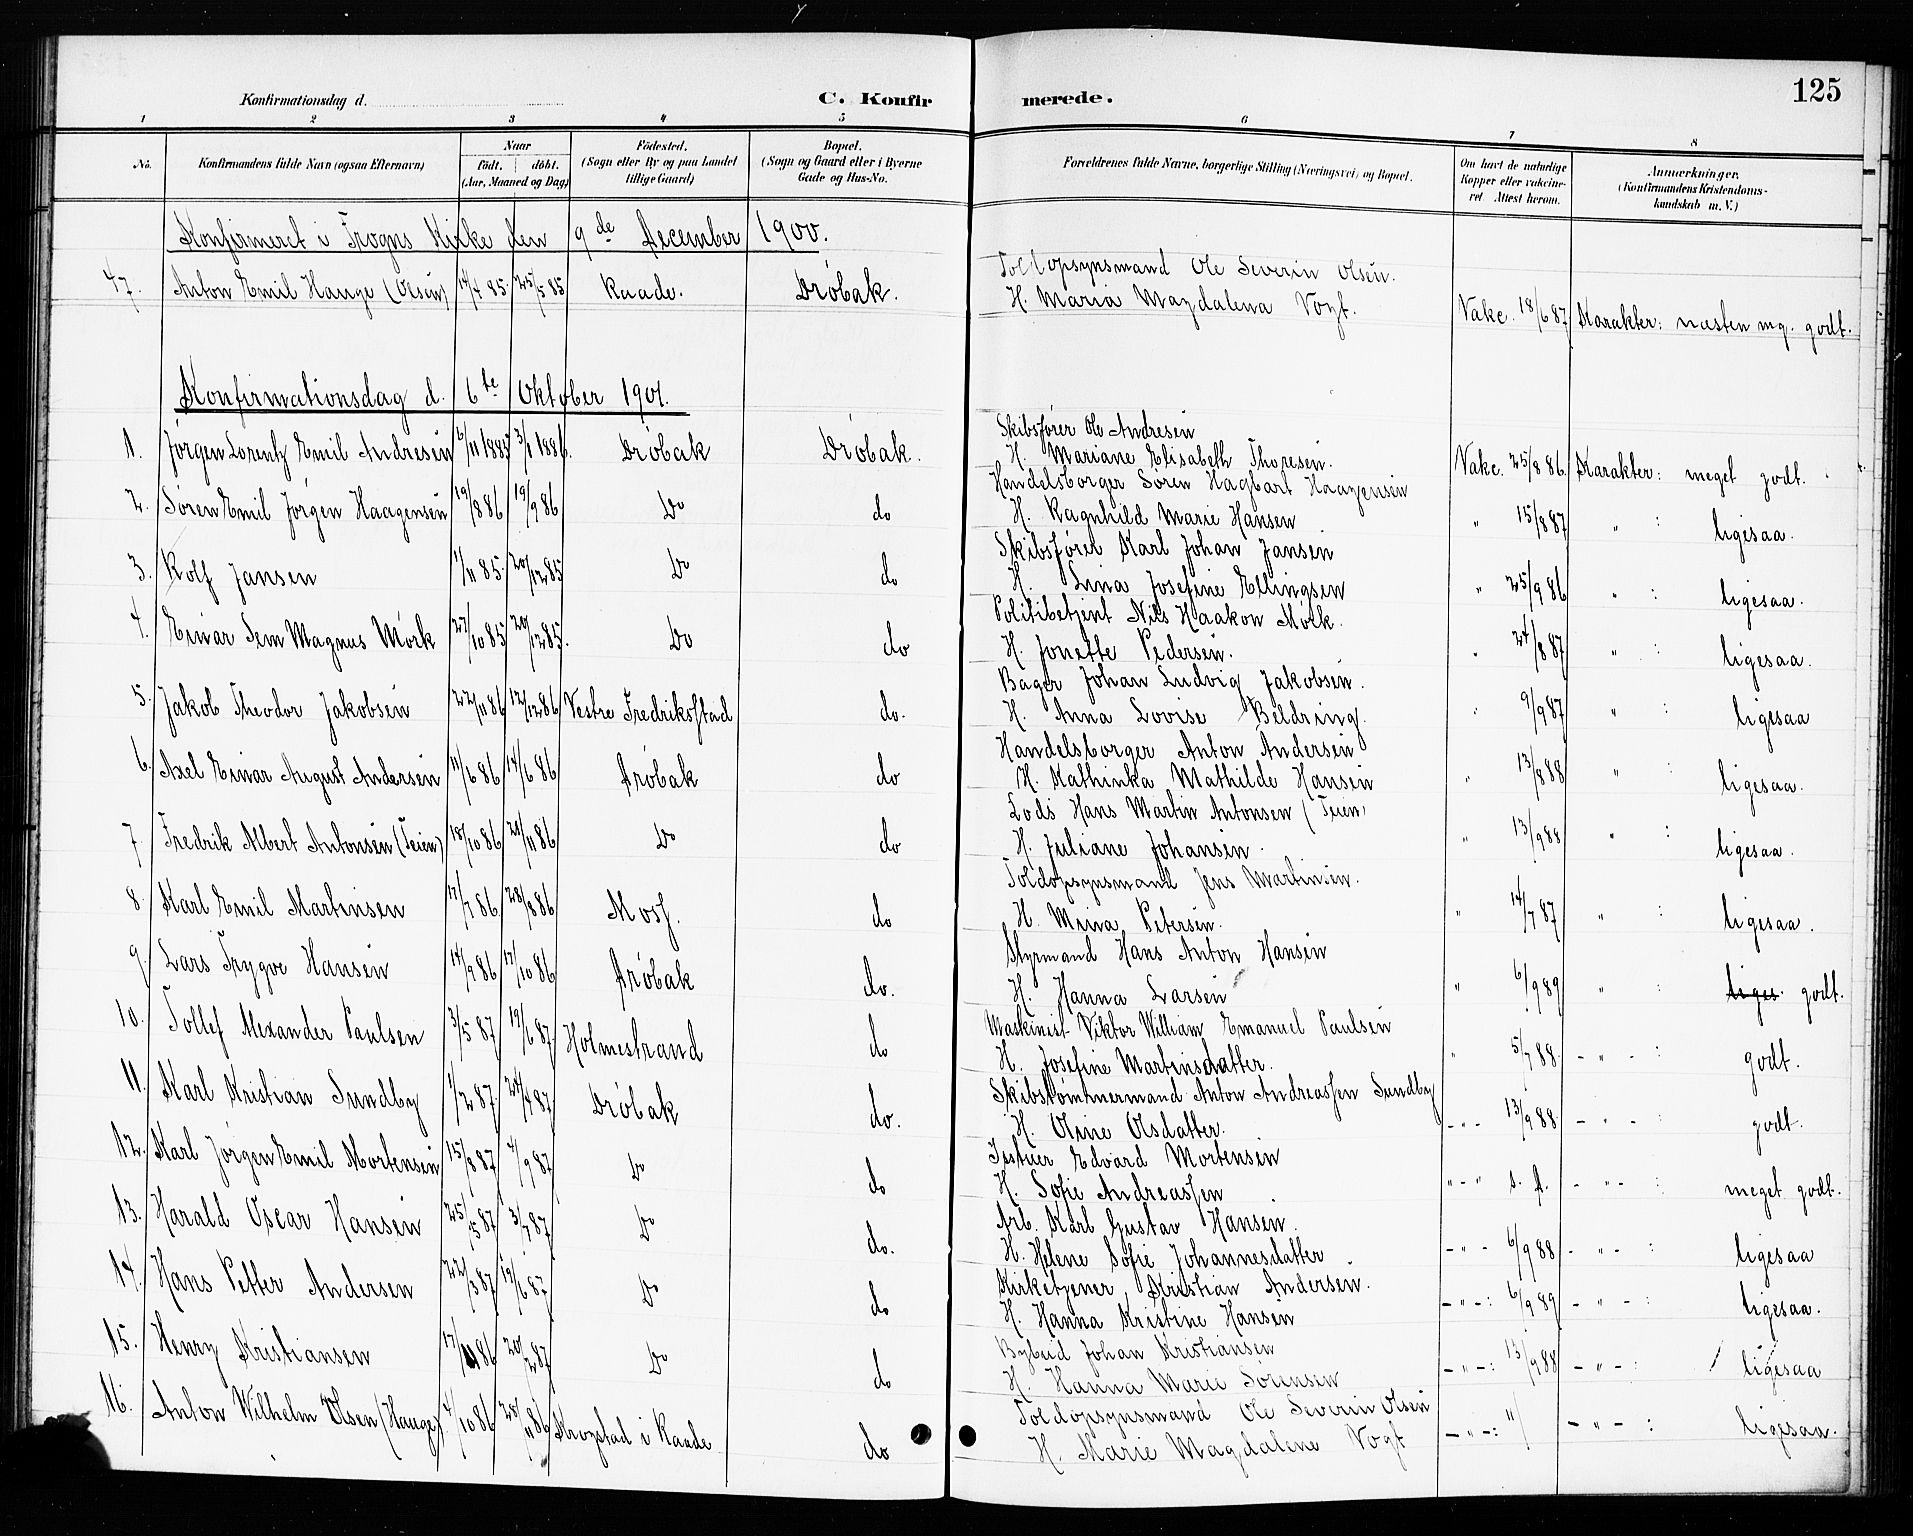 125
Konfirmationsdag d. C. Konfirmerede.
1 2 3 4 5 6 7 8
No. Konfirmandens fulde Navn (ogsaa Efternavn) Naar født. døbt. (Aar, Maaned og Dag) Fødested. (Sogn eller By og paa Landet tillige Gaard) Bopæl. (Sogn og Gaard eller i Byerne Gade og Hus-No. Forældrenes fulde Navne, borgerlige Stilling (Næringsvei) og Bopæl. Om havt de naturlige Kopper eller vakcineret Attest herom. Anmærkninger. (Konfirmandens Kristendomskundskab m. V.)
Konfirmeret i Frogns Kirke den 9de December 1900.
47. Anton Emil Hauge (Olsen) 14/4 85. 25/5 85 Raade. Drøbak. Toldopsynsmand Ole Severin Olsen. H. Maria Magdalena Vogt. Vakc. 18/6 87 Karakter: næsten mg. godt.
Konfirmationsdag d. 6te Oktober 1901.
1. Jørgen Lorentz Emil Andresen 6/11 1885 3/1 1886. Drøbak Drøbak. Skibsfører Ole Andresen H. Mariane Elisabeth Thoresen. Vakc. 25/8 86. Karakter: meget godt.
2. Søren Emil Jørgen Haagensen 19/8 86 19/9 86 Do do Handelsborger Søren Hagbart Haagensen H. Ragnhild Marie Hansen " 15/8 87 " : ligesaa.
3. Rolf Jansen 1/11 85. 20/12 85 Do do Skibsfører Karl Johan Jansen H. Lina Josefine Ellingsen " 25/9 86 " : ligesaa.
4. Einar Sem Magnus Mørk 27/10 85 20/12 85. Do do Politibetjent Nils Haakon Mørk. H. Jonette Pedersen. " 24/8 87 " : ligesaa.
5. Jakob Theodor Jakobsen 22/11 86 12/12 86 Vestre Fredriksstad do. Bager Johan Ludvig Jakobsen. H. Anna Lovise Beldring. " 9/9 87 " : ligesaa
6. Axel Einar August Andersen 11/6 86 14/6 86 Drøbak do Handelsborger Anton Andersen H. Kathinka Mathilde Hansen " 13/8 88 " : ligesaa.
7. Fredrik Albert Antonsen (Teien) 18/10 86 28/11 86 Do do Lods Hans Martin Antonsen (Teien) H. Juliane Johansen. " 13/9 88 " : ligesaa.
8. Karl Emil Martinsen 17/7 86. 28/8 86 Moss. do Toldopsynsmand Jens Martinsen. H. Mina Petersen. " 14/7 87 " : ligesaa.
9. Lars Trygve Hansen 14/9 86 17/10 86 Drøbak do. Styrmand Hans Anton Hansen H. Hanna Larsen " 6/9 89 " : liges. godt.
10. Tollef Alexander Paulsen 3/5 87 19/6 87 Holmestrand do Maskinist Viktor William Emanuel Paulsen H. Josefine Martinsdatter. " 5/7 88. - " - : godt.
11. Karl Kristian Sundby 1/2 87 24/4 87 Drøbak do. Skibstømmermand Anton Andreassen Sundby H. Oline Olsdatter. - " - 13/9 88. - " - : godt.
12. Karl Jørgen Emil Mortensen 15/8 87 4/9 87 Do do Edvard Mortensen H. Sofie Andreassen " - " - " - : meget godt.
13. Harald Oscar Hansen 25/5 87 3/7 87 Do do. Arb. Karl Gustav Hansen. H. Helene Sofie Johannesdatter - " - 6/9 88 - " - : ligesaa
14. Hans Petter Andersen 22/3 87 19/6 87 Do do Kirketjener Kristian Andersen. H. Hanna Kristine Hansen - " - : 6/9 89 - " - : ligesaa.
15. Henry Kristiansen 17/11 86 20/2 87 Do do Johan Kristiansen H. Hanna Marie Sørensen - " - : 13/9 88 - " - : ligesaa
16. Anton Wilhelm Olsen (Hauge) 4/10 86 28/11 86 Krogstad i Raade do Toldopsynsmand Ole Severin Olsen H. Marie Magdalene Vogt - " - : "/ - " - : ligesaa.